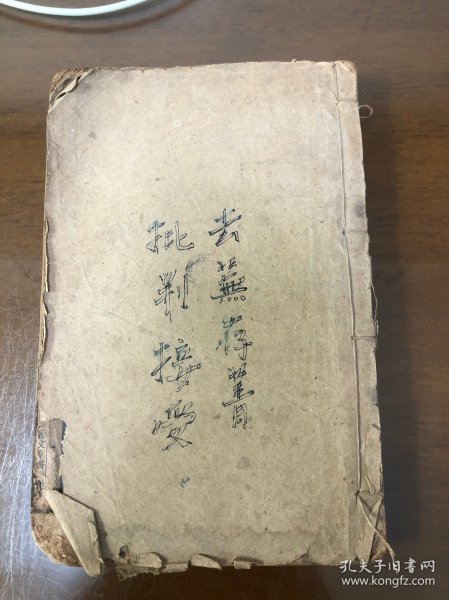 去蕪存菁
批判接受
孔夫子旧书网
www.kongfz.com